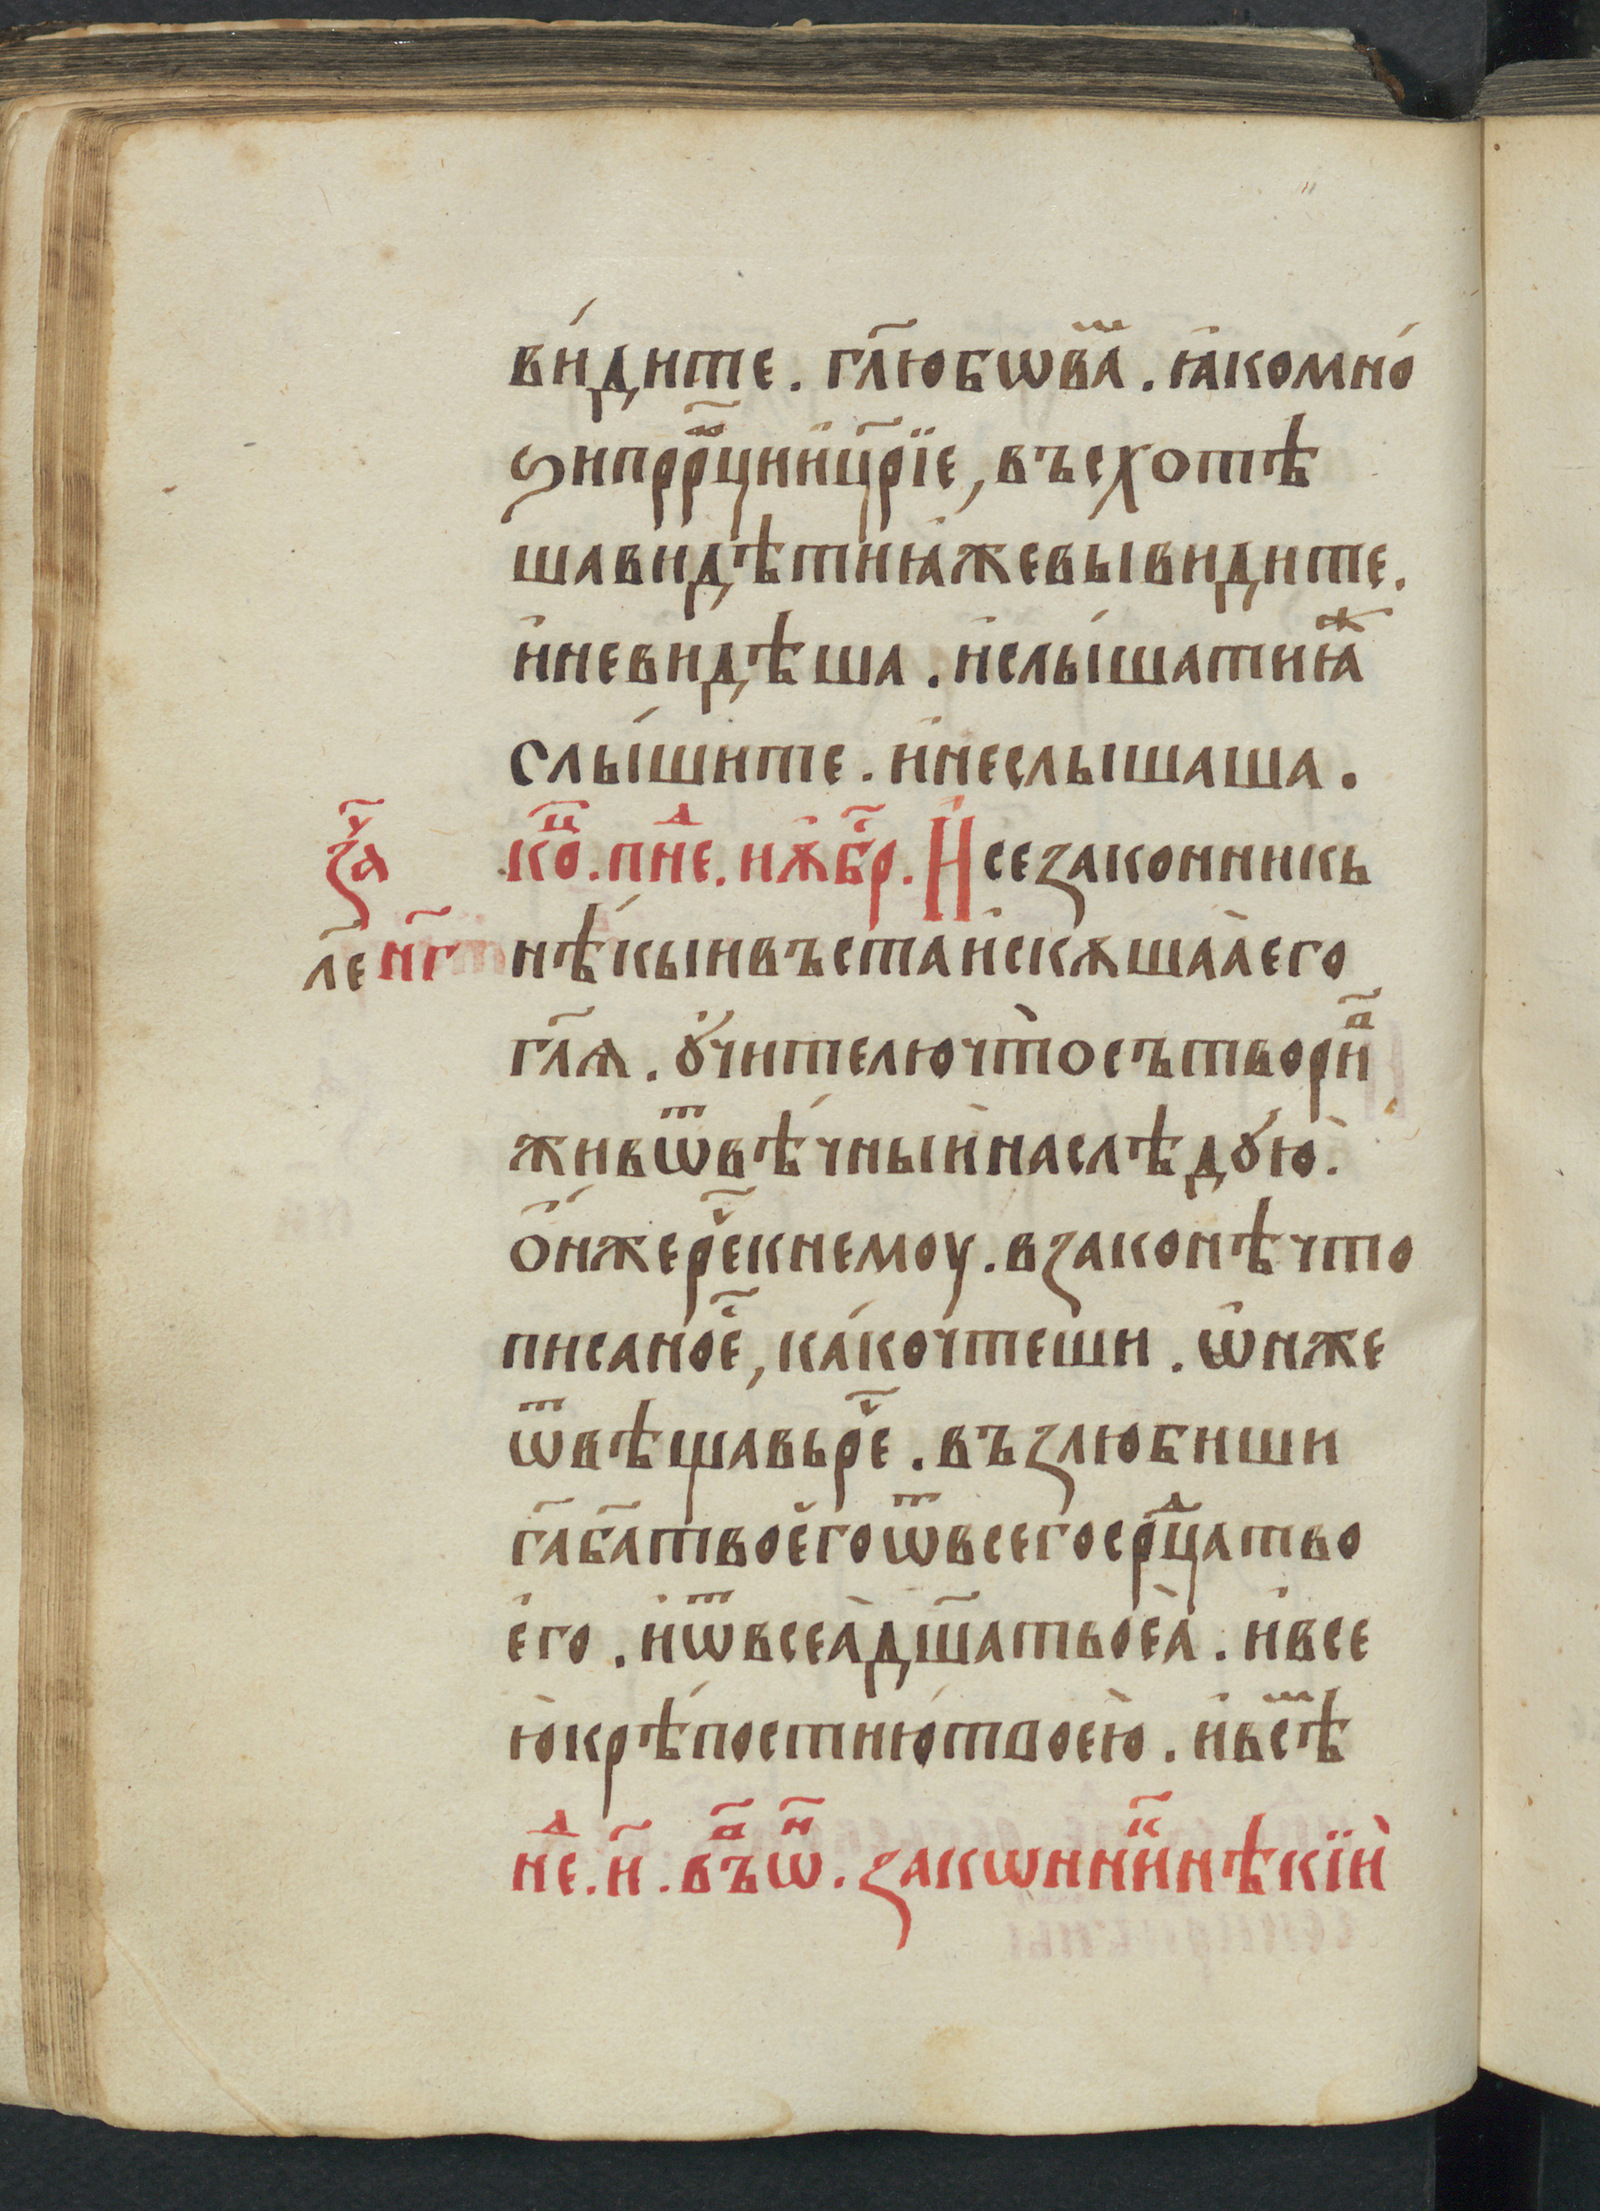 ви́дите . гл҃юбѡва̑ⷨ . ꙗ҆комно́
ѕипррⷪ҇циицр҃їе , въсхотѣ
шавидѣтиꙗ҆жевывидите .
и҆невидѣша . и҆слы́шатиꙗⷤ
слы́шите . и҆неслышаша .
заⷱ҇ коⷰ҇ . пнеⷣ . нѫбрⷭ҇ . И҆сезаконникь
лє҃ нг҃ нѣ́кыивъстаи҆скѫшаа̀его
гл҃ѧ . ꙋ҆чителючто̀сътвориⷡ҇
живѡⷮвѣ́чныи҆наслѣдꙋ́ю̀ .
О҆нжереⷱ҇кнемоу . взаконѣчто
писаноеⷭ҇ , ка́кочтеши . ѡ҆нже
ѿвѣщавьреⷱ҇ . възлюбиши
га҃ба҃твое҆гоѿвсегосрⷣцатво
е҆го . и҆ѿвсеа̀дш҃атьоеѧ̀ . и҆все
ю̀крѣ́постию́твоею̀ . и҆всⷨѣ
неⷣ . и҃ . въⷡ҇ѡⷩ҇ . закѡнниⷦ҇нѣкїѝ